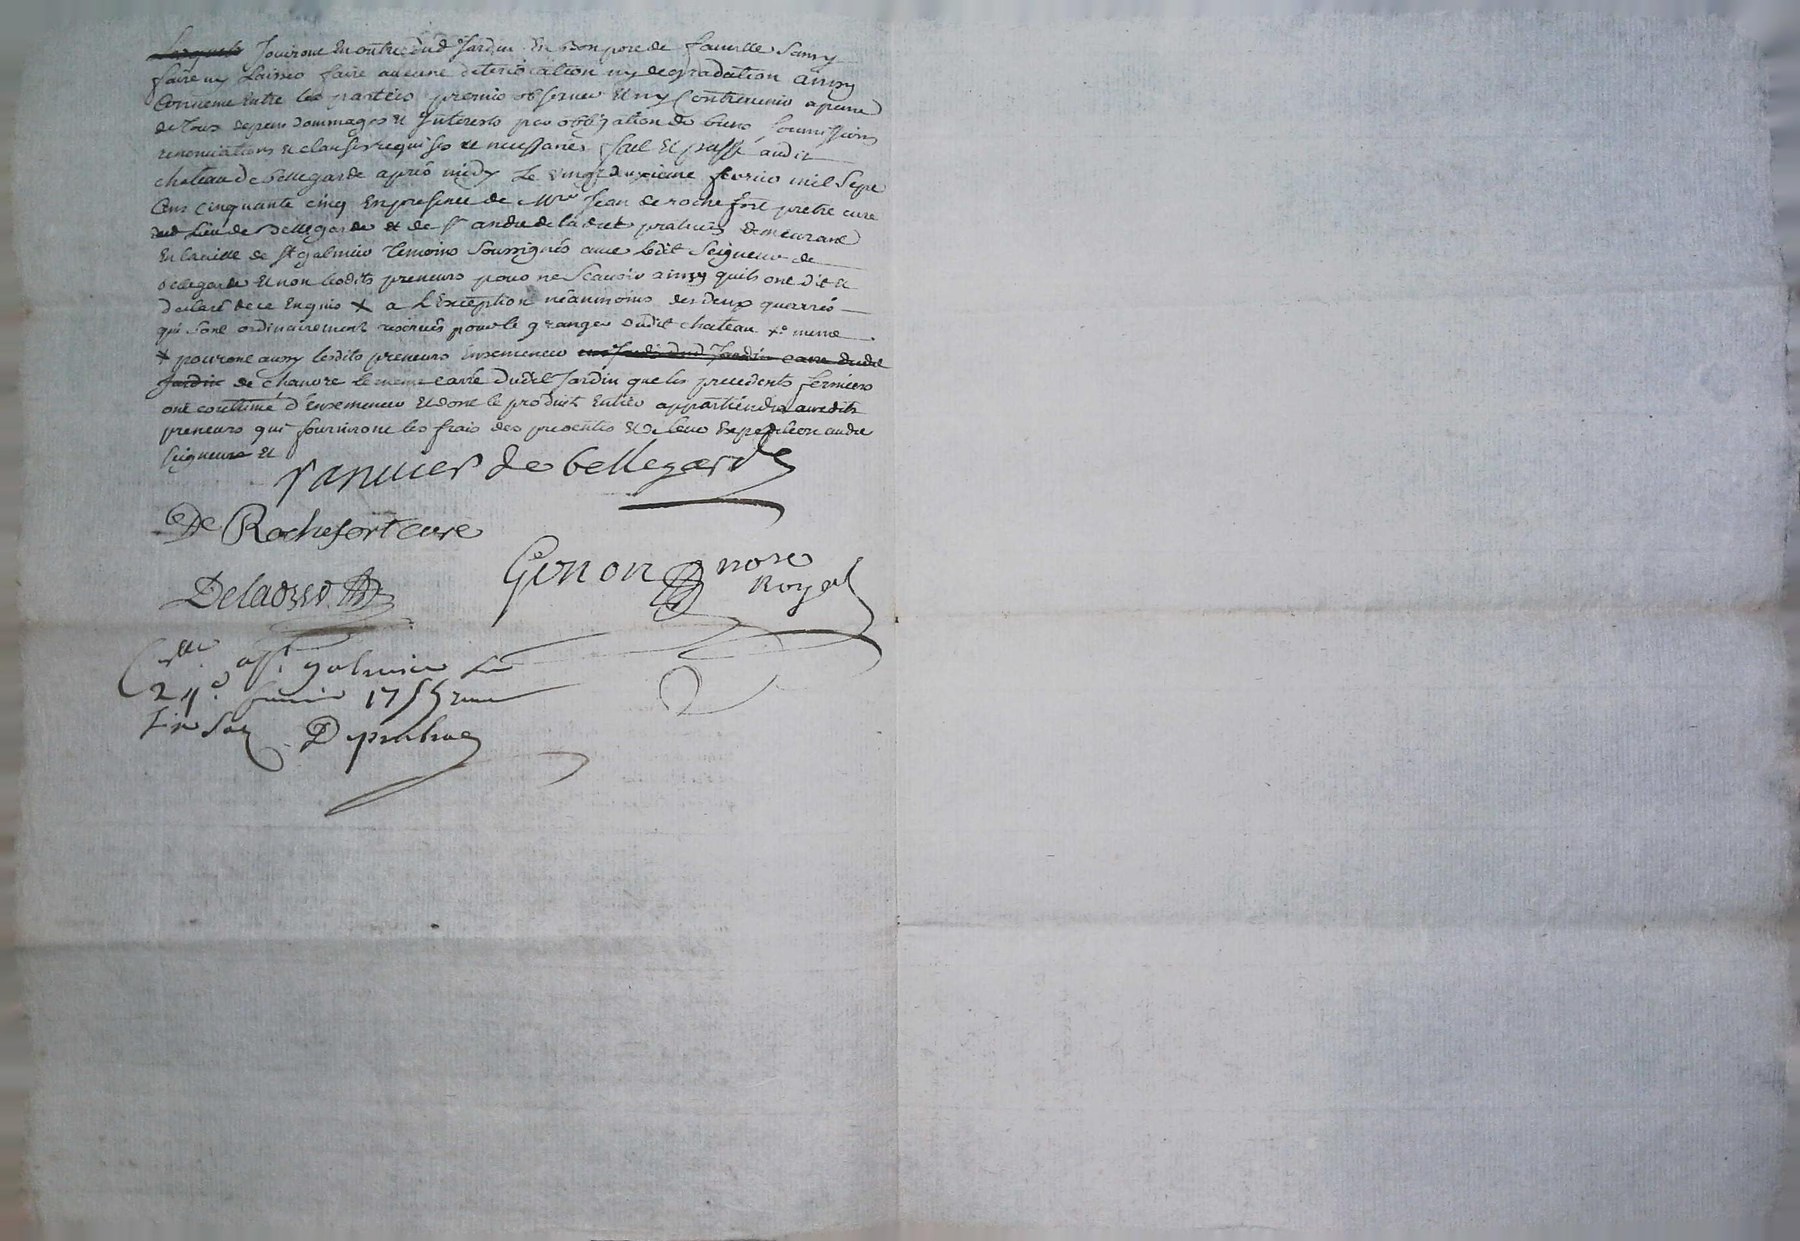 Lesquels Jouiront En outre dud Jardin En Bon pere de famille Sans y
faire ny Laisser faire aucune deterioration ny degradation ainsy
Convenu Entre les parties promis observer Et ny Contrevenir a peine
de tous depens dommages et Interests par obligation de biens soumissions
renonciations et clauses requises et necessaires fait Et passé audit
chateau de Bellegarde aprés midy Le vingt deuxieme fevrier mil Sept
Cens cinquante cinq En presence de Mre Jean de rochefort pretre curé
dud Lieu de Bellegarde et de Sr andre de la praticien demeurant
En la ville de St galmier temoins Soussignés avec ledit Seigneur de
bellegarde Et non lesdits preneurs pour ne Scavoir ainsy quils ont dit et
declaré de ce Enquis x a L'Exception néanmoins des deux quarrés
qui sont ordinairement reservés pour le granger dudit chateau x meme
x pourront aussy lesdits preneurs Ensemencer Jardin carre dudit
Jardin de chanvre le meme carré dudit Jardin que les precedents fermiers
ont coutumé d'Ensemencer Et dont le produit Entier appartiendra auxdits
preneurs qui fourniront les frais des presentes Et de leur Expedition audit
Seigneur Et
Vanuier de bellegarde
De Rochefort curé
Ginon nore
Royal
C a St galmier Le
24e fevrier 1755